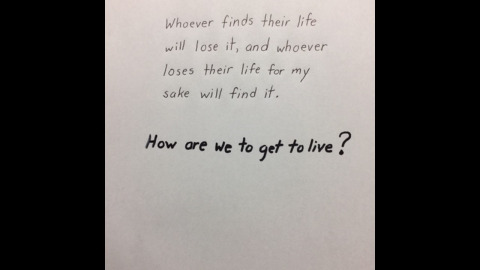 Whoever finds their life
will lose it, and whoever
loses their life for my
sake will find it.
How are we to get to live?